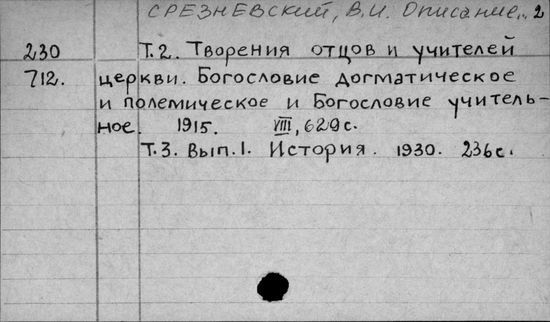 СРЕЗНЕВСКИЙ, В.И. Описание... 2
230 Т.2. Творения отцов и учителей
712. церкви. Богословие догматическое
и полемическое и Богословие учитель-
ное. 1915. VIII, 629 с.
Т.3. Вып.1. История. 1930. 236 с.